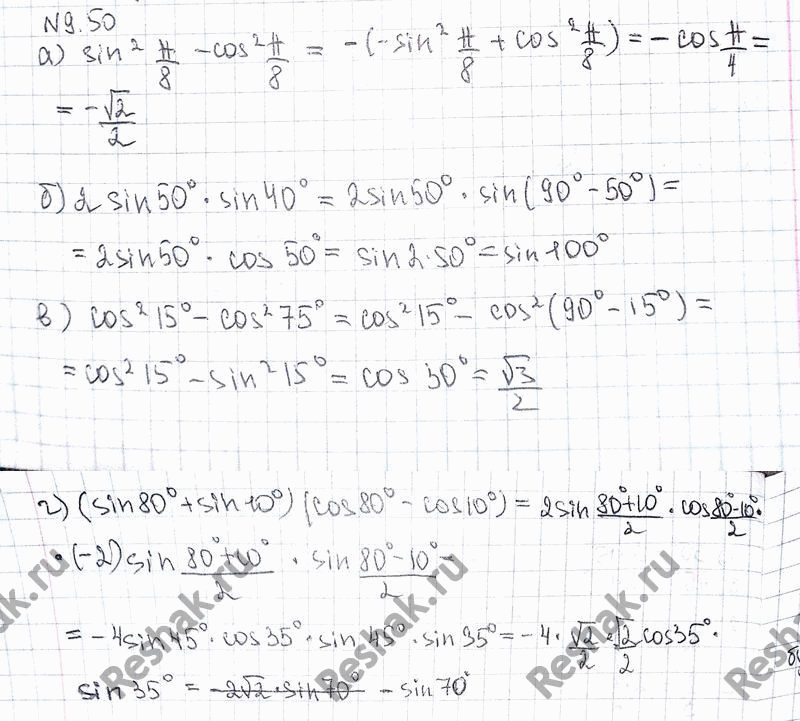 №9.50
а) sin² π/8 - cos² π/8 = -(-sin² π/8 + cos² π/8) = - cos π/4 =
= - √2/2
б) 2 sin50° · sin40° = 2sin50° · sin(90° - 50°) =
= 2sin50° · cos 50° = sin2·50° = sin100°
в) cos² 15° - cos² 75° = cos² 15° - cos² (90° - 15°) =
= cos² 15° - sin² 15° = cos 30° = √3/2
г) (sin80° + sin10°) (cos80° - cos10°) = 2sin (80°+10°)/2 · cos (80°-10°)/2 ·
· (-2) sin (80°+10°)/2 · sin (80°-10°)/2 =
= -4sin45° · cos35° · sin 45° · sin 35° = -4 · √2/2 · √2/2 cos35° ·
sin 35° = -2√2 · sin70° - sin 70°
Reshak.ru
Reshak.ru
Reshak.ru